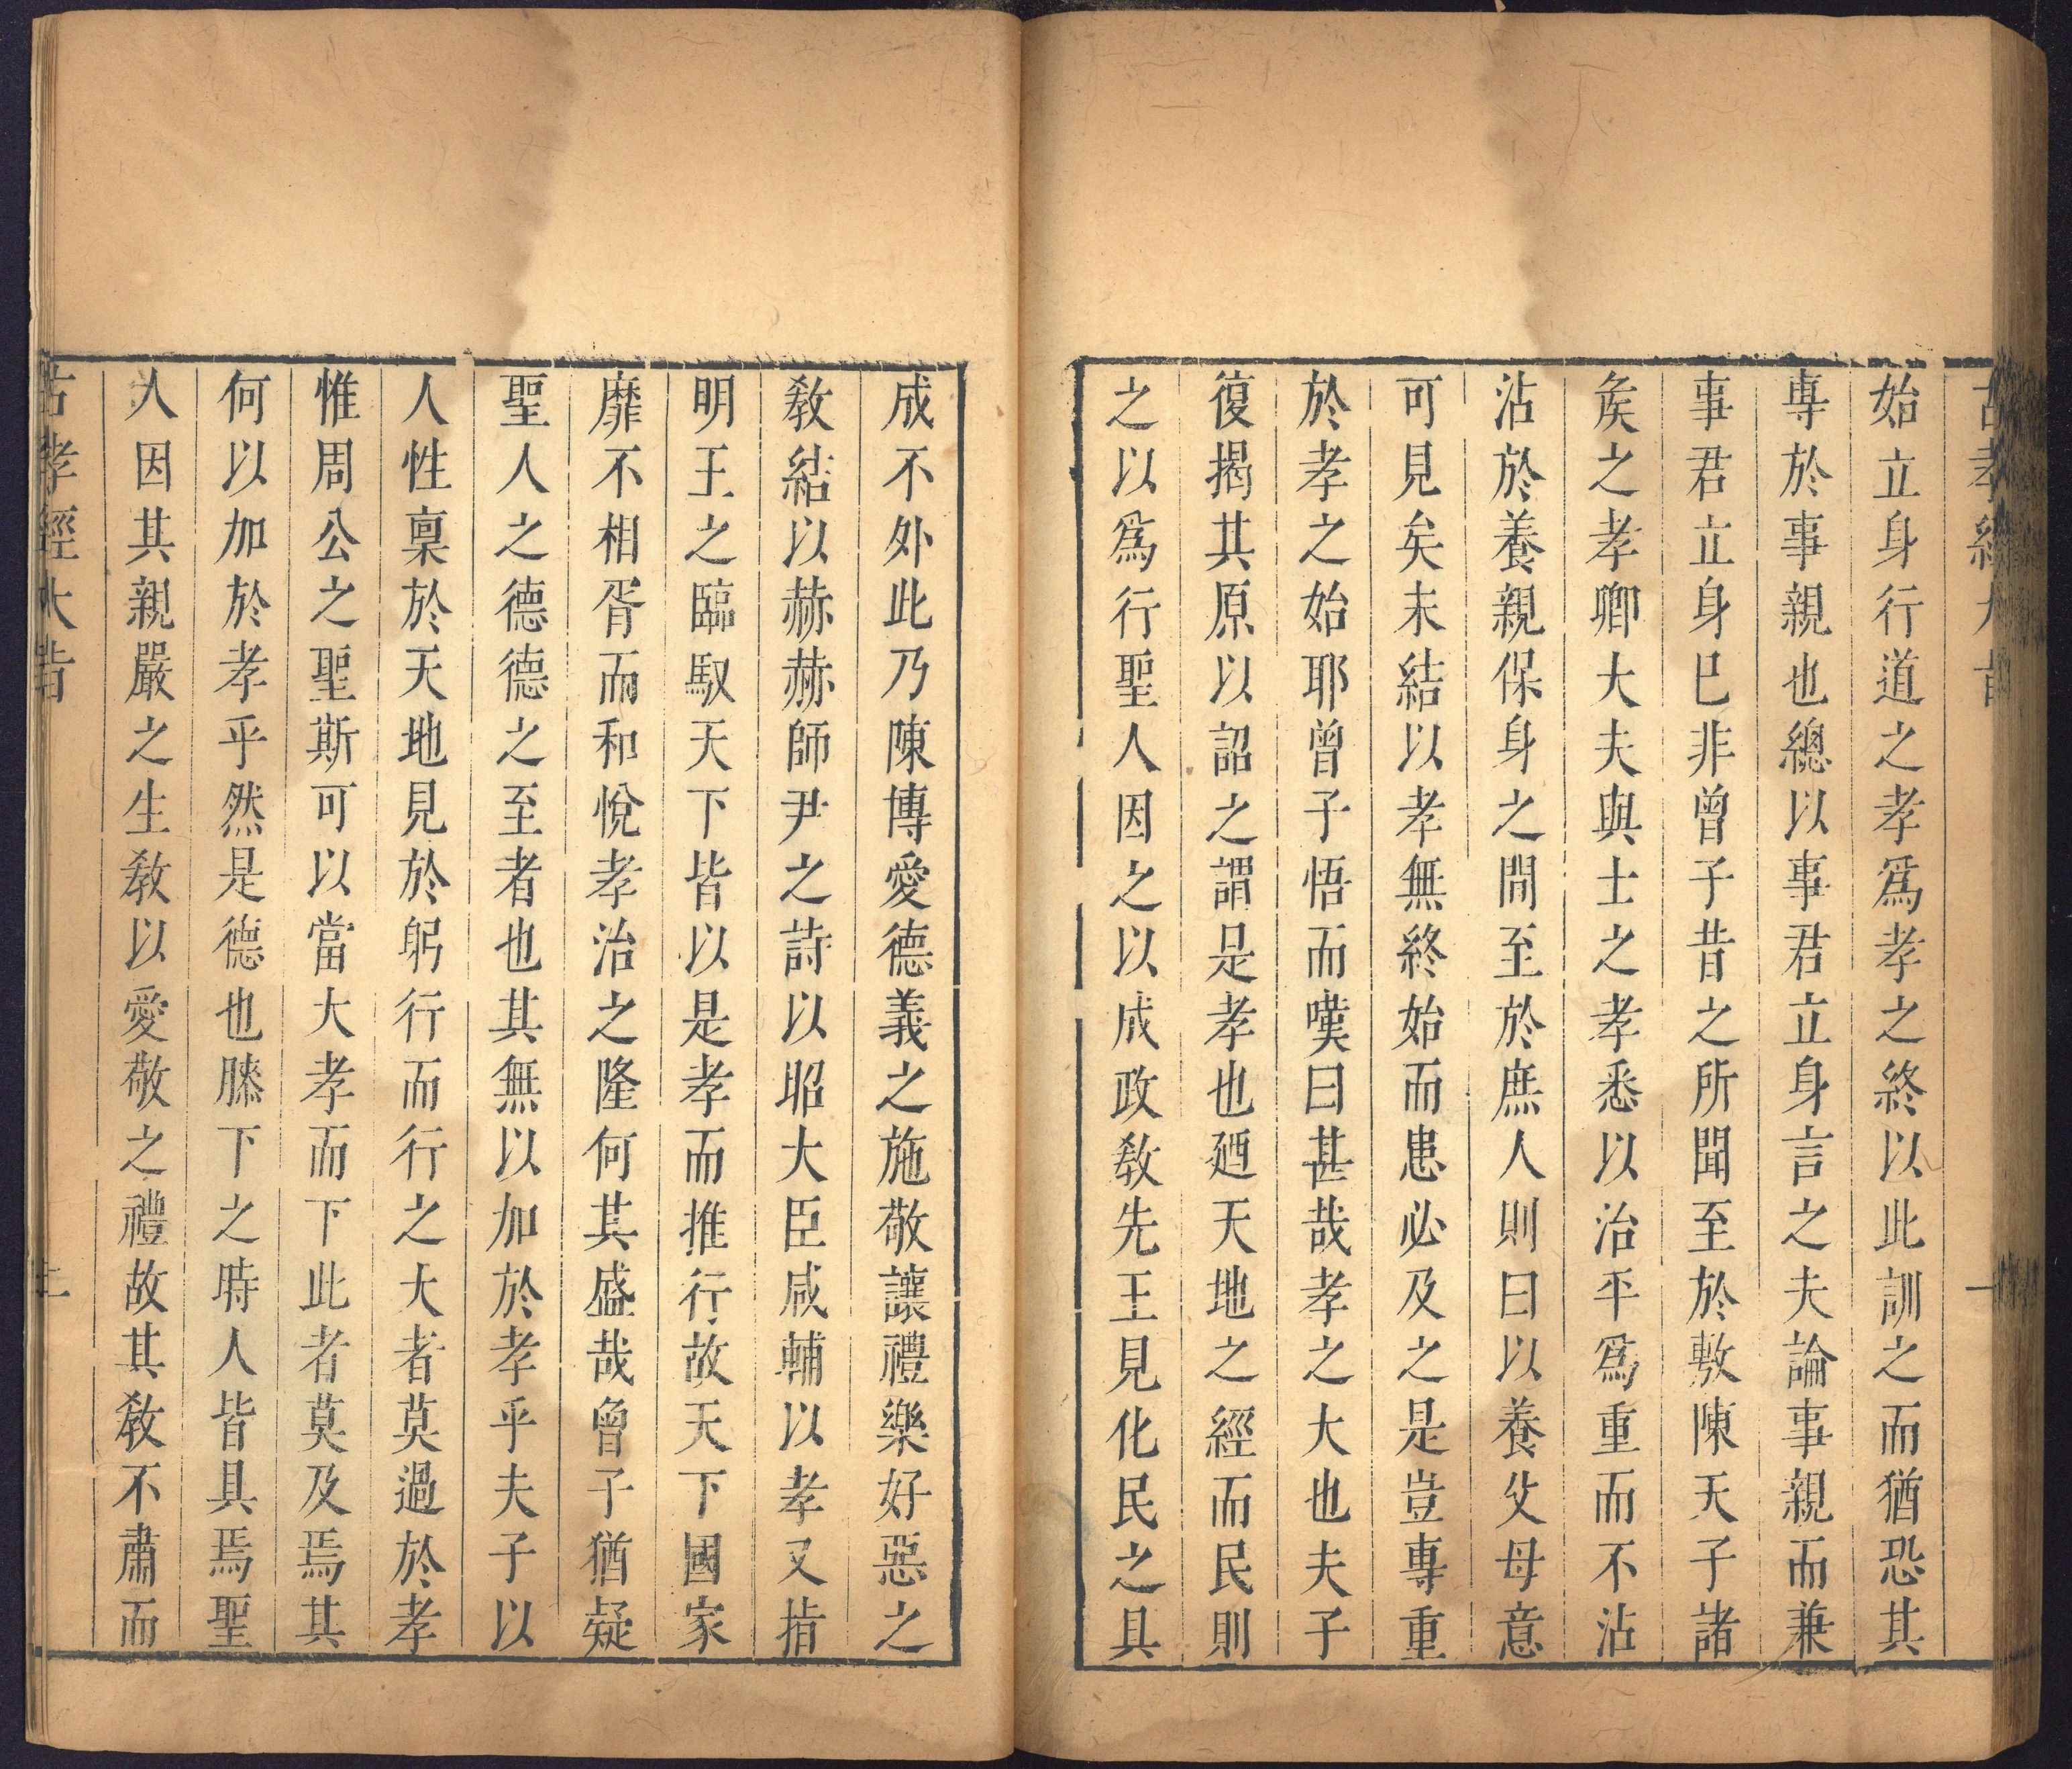 古孝經大旨 一
始立身行道之孝爲孝之終以此訓之而猶恐其
專於事親也總以事君立身言之夫論事親而兼
事君立身巳非曾子昔之所聞至於敷陳天子諸
矦之孝卿大夫與士之孝悉以治平爲重而不沾
沾於養親保身之間至於庶人則曰以養父母意
可見矣末結以孝無終始而患必及之是豈專重
於孝之始耶曾子悟而嘆曰甚哉孝之大也夫子
復揭其原以詔之謂是孝也廼天地之經而民則
之以爲行聖人因之以成政敎先王見化民之具
成不外此乃陳博愛德義之施敬讓禮樂好惡之
敎結以赫赫師尹之詩以昭大臣咸輔以孝又指
明王之臨馭天下皆以是孝而推行故天下國家
靡不相胥而和悅孝治之隆何其盛哉曾子猶疑
聖人之德德之至者也其無以加於孝乎夫子以
人性稟於天地見於躬行而行之大者莫過於孝
惟周公之聖斯可以當大孝而下此者莫及焉其
何以加於孝乎然是德也膝下之時人皆具焉聖
人因其親嚴之生敎以愛敬之禮故其敎不肅而
古孝經大旨